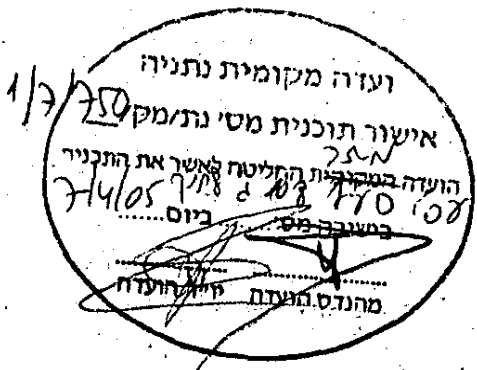 ועדה מקומית נתניה
אישור תוכנית מס׳ נת/מק/750/7/1
הועדה המקומית החליטה לאשר את התכנית
בישיבה מס ביום 7/4/05
מהנדס הועדה יו״ר הועדה